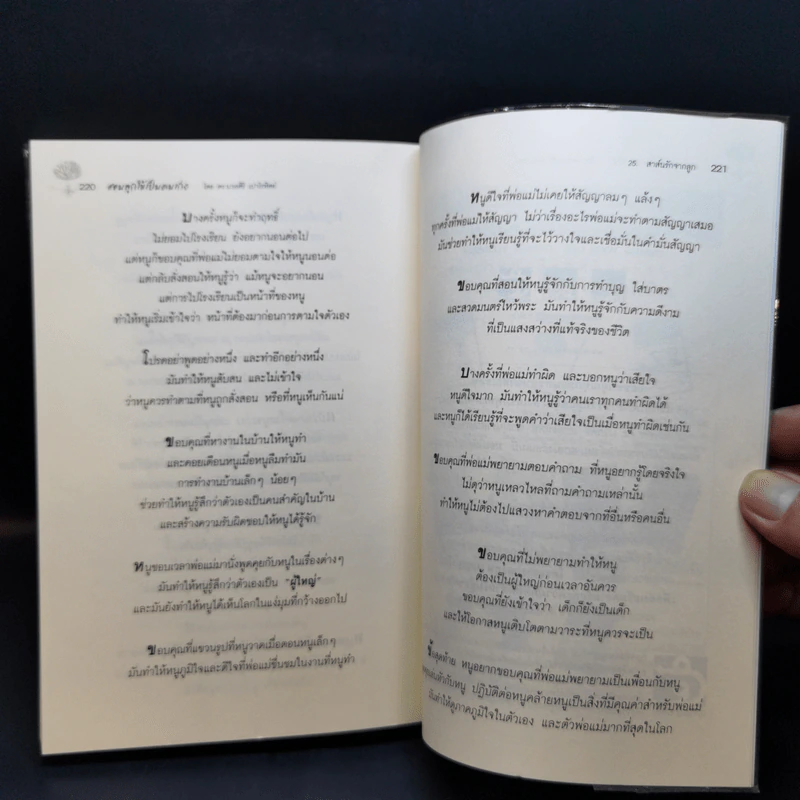 220 สอนลูกให้เป็นคนเก่ง โดย
บางครั้งหนูก็จะทำฤทธิ์
ไม่ยอมไปโรงเรียน ยังอยากนอนต่อไป
แต่หนูก็ขอบคุณที่พ่อแม่ไม่ยอมตามใจให้หนูนอนต่อ
แต่กลับสั่งสอนให้หนูรู้ว่า แม้หนูจะอยากนอน
แต่การไปโรงเรียนเป็นหน้าที่ของหนู
ทำให้หนูเริ่มเข้าใจว่า หน้าที่ต้องมาก่อนการตามใจตัวเอง
โปรดอย่าพูดอย่างหนึ่ง และทำอีกอย่างหนึ่ง
มันทำให้หนูสับสน และไม่เข้าใจ
ว่าหนูควรทำตามที่หนูถูกสั่งสอน หรือที่หนูเห็นกันแน่
ขอบคุณที่หางานในบ้านให้หนูทำ
และคอยเตือนหนูเมื่อหนูลืมทำมัน
การทำงานบ้านเล็กๆ น้อยๆ
ช่วยทำให้หนูรู้สึกว่าตัวเองเป็นคนสำคัญในบ้าน
และสร้างความรับผิดชอบให้หนูได้รู้จัก
หนูชอบเวลาพ่อแม่มานั่งพูดคุยกับหนูในเรื่องต่างๆ
มันทำให้หนูรู้สึกว่าตัวเองเป็น "ผู้ใหญ่"
และมันยังทำให้หนูได้เห็นโลกในแง่มุมที่กว้างออกไป
ขอบคุณที่แขวนรูปที่หนูวาดเมื่อตอนหนูเล็กๆ
มันทำให้หนูภูมิใจและดีใจที่พ่อแม่ชื่นชมในงานที่หนูทำ
25. สาส์นรักจากลูก 221
หนูดีใจที่พ่อแม่ไม่เคยให้สัญญาลมๆ แล้งๆ
ทุกครั้งที่พ่อแม่ให้สัญญา ไม่ว่าเรื่องอะไรพ่อแม่จะทำตามสัญญาเสมอ
มันช่วยทำให้หนูเรียนรู้ที่จะไว้วางใจและเชื่อมั่นในคำมั่นสัญญา
ขอบคุณที่สอนให้หนูรู้จักกับการทำบุญ ใส่บาตร
และสวดมนตร์ไหว้พระ มันทำให้หนูรู้จักกับความดีงาม
ที่เป็นแสงสว่างที่แท้จริงของชีวิต
บางครั้งที่พ่อแม่ทำผิด และบอกหนูว่าเสียใจ
หนูดีใจมาก มันทำให้หนูรู้ว่าคนเราทุกคนทำผิดได้
และหนูก็ได้เรียนรู้ที่จะพูดคำว่าเสียใจเป็นเมื่อหนูทำผิดเช่นกัน
ขอบคุณที่พ่อแม่พยายามตอบคำถาม ที่หนูอยากรู้โดยจริงใจ
ไม่ดุว่าหนูเหลวไหลที่ถามคำถามเหล่านั้น
ทำให้หนูไม่ต้องไปแสวงหาคำตอบจากที่อื่นหรือคนอื่น
ขอบคุณที่ไม่พยายามทำให้หนู
ต้องเป็นผู้ใหญ่ก่อนเวลาอันควร
ขอบคุณที่ยังเข้าใจว่า เด็กก็ยังเป็นเด็ก
และให้โอกาสหนูเติบโตตามวาระที่หนูควรจะเป็น
สุดท้าย หนูอยากขอบคุณที่พ่อแม่พยายามเป็นเพื่อนกับหนู
กับหนู ปฏิบัติต่อหนูคล้ายหนูเป็นสิ่งที่มีคุณค่าสำหรับพ่อแม่
มันทำให้หนูภาคภูมิใจในตัวเอง และตัวพ่อแม่มากที่สุดในโลก